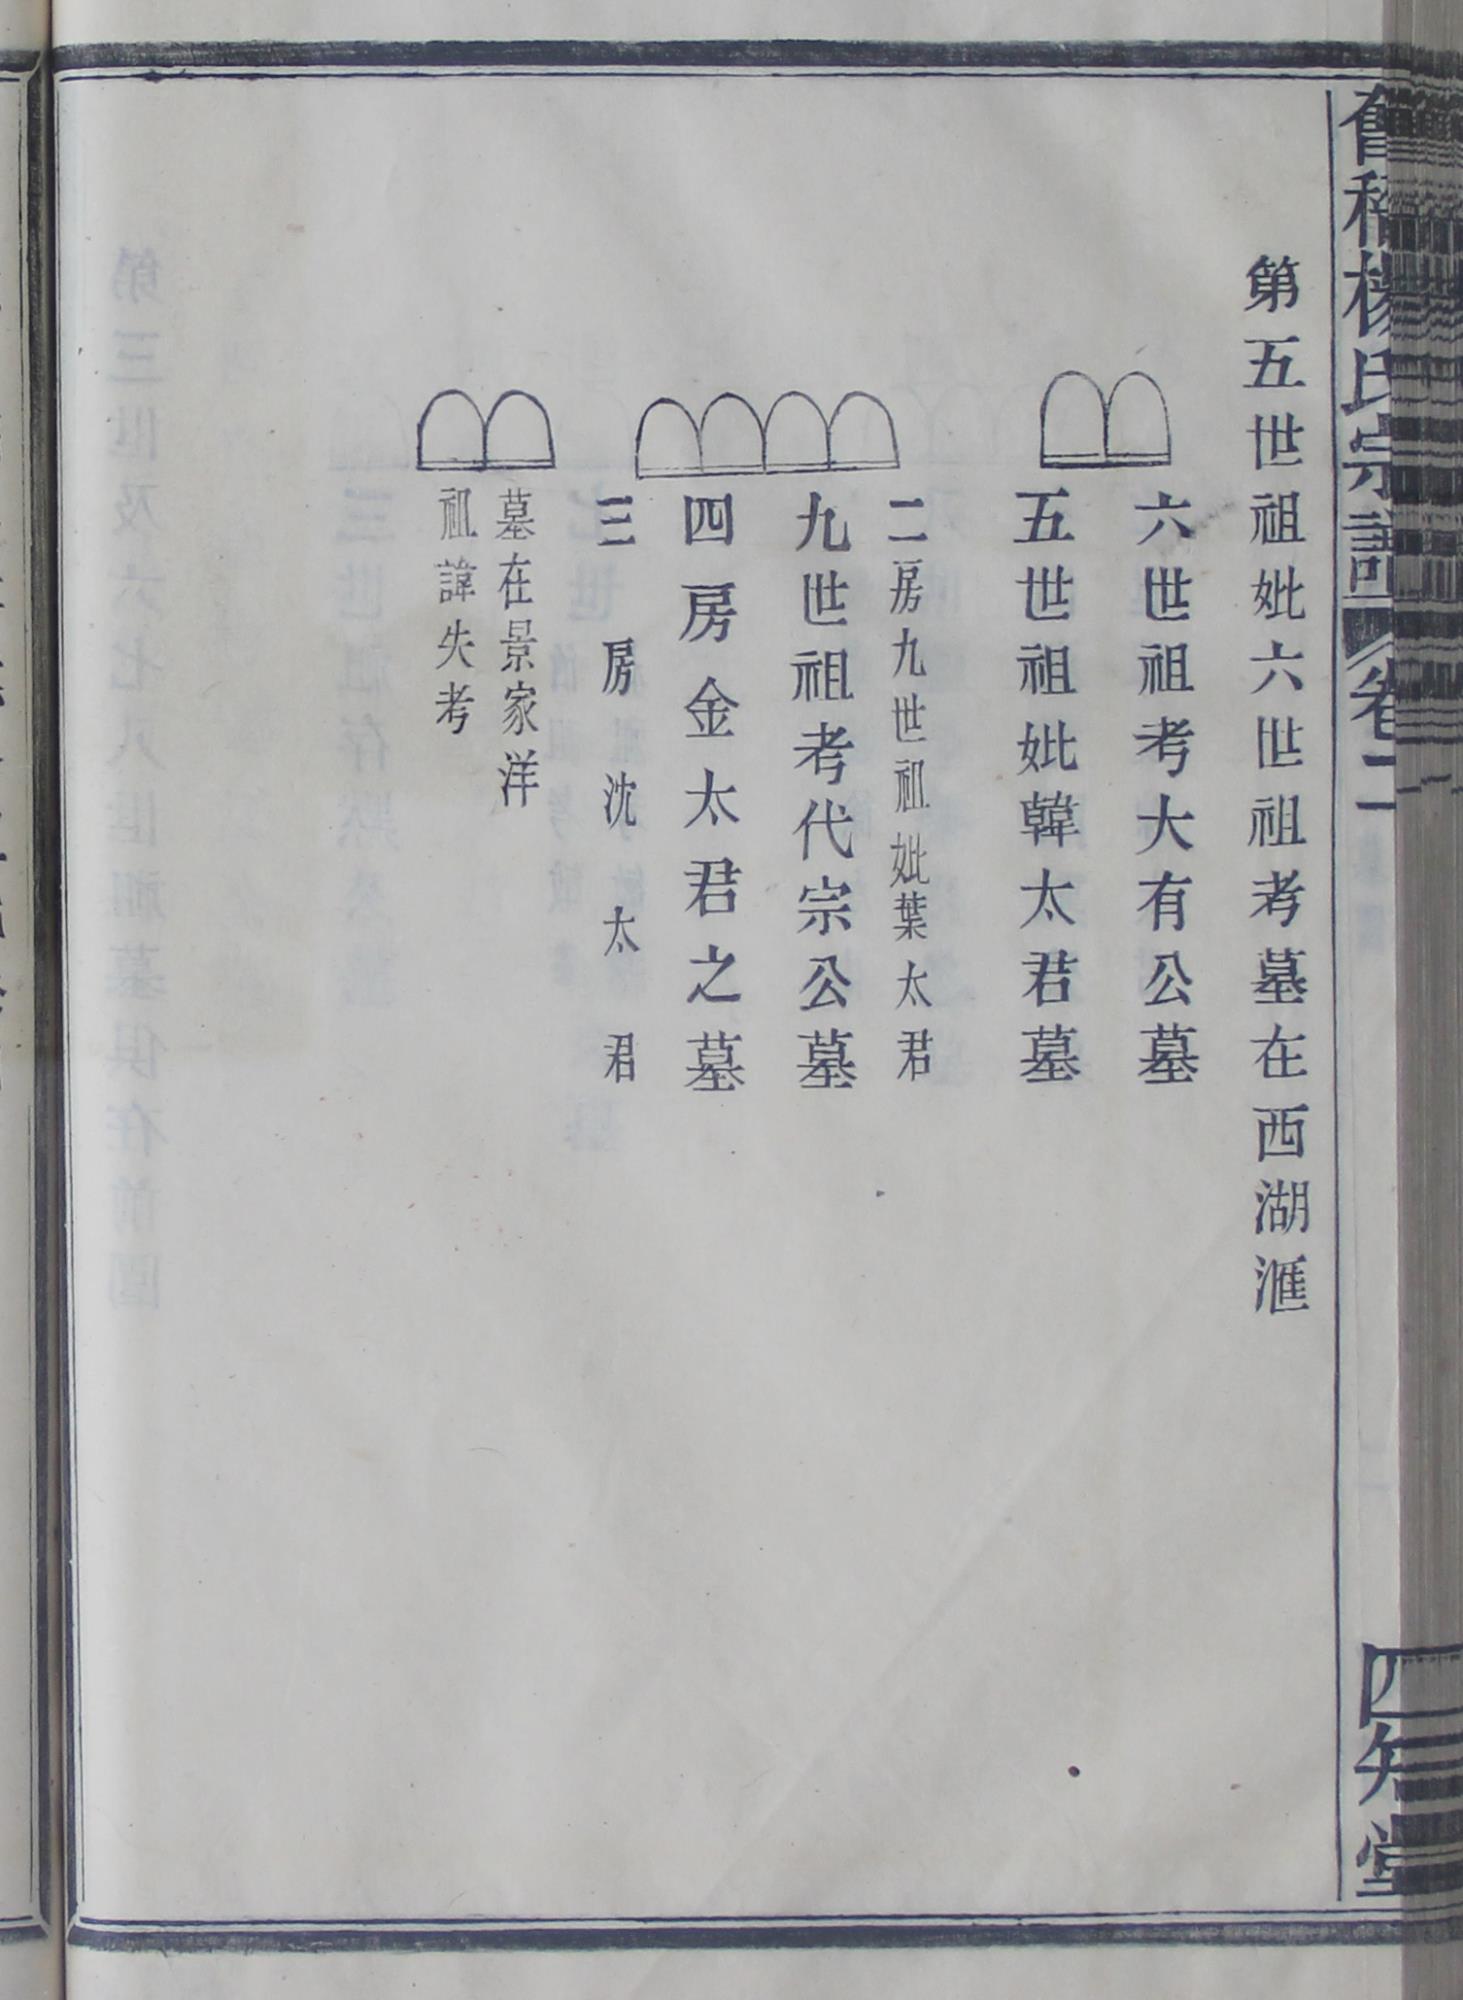 舊稱楊氏宗譜 卷二
四知堂
第五世祖妣六世祖考墓在西湖滙
六世祖考大有公墓
五世祖妣韓太君墓
二房九世祖妣葉太君
九世祖考代宗公墓
四房金太君之墓
三房沈太君
墓在景家洋
祖諱失考